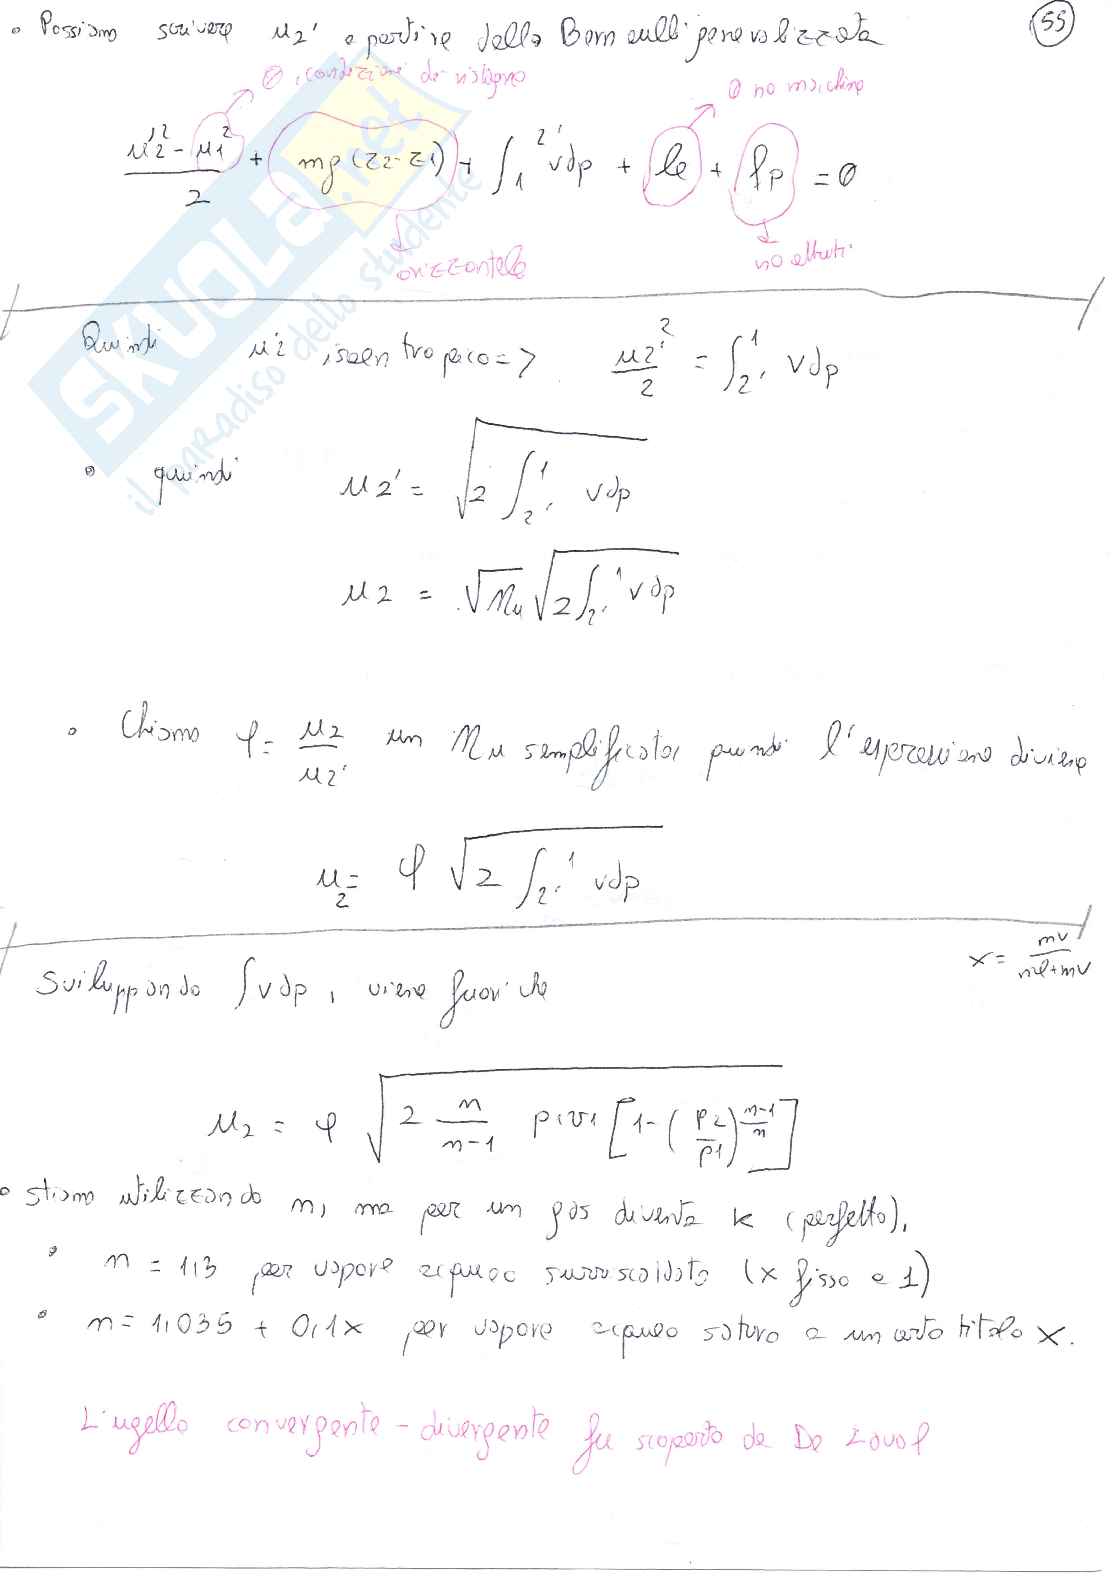 • Possiamo scrivere u2' a partire dalla Bernoulli generalizzata
55
0, condizioni di ristagno
0 no macchina
(u2'² - u1²)/2 + mg(z2-z1) + ∫₁^2' vdp + le + fp = 0
orizzontale
no attriti
Quindi u2' isoentropico => u2'²/2 = ∫_2'^1 vdp
• quindi u2' = √(2 ∫_2'^1 vdp)
u2 = √ηu √(2 ∫_2'^1 vdp)
• Chiamo φ = u2/u2' un ηu semplificato, quindi l'espressione diviene
u2 = φ √(2 ∫_2'^1 vdp)
x = mv/(ml+mv)
Sviluppando ∫vdp, viene fuori che
u2 = φ √(2 n/(n-1) p1v1 [1-(p2/p1)^((n-1)/n)])
• stiamo utilizzando n, ma per un gas diventa k (perfetto),
• n = 1,3 per vapore acqueo surriscaldato (x fisso a 1)
• n = 1,035 + 0,1x per vapore acqueo saturo a un certo titolo x.
L'ugello convergente - divergente fu scoperto da De Laval
SKUOLA.net
il paradiso dello studente